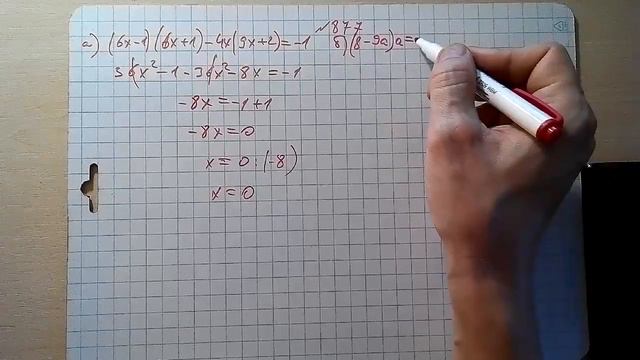 № 877
а) (6x-1)(6x+1)-4x(9x+2)=-1
б) (8-9a)a=
36x²-1-36x²-8x=-1
-8x=-1+1
-8x=0
x=0:(-8)
x=0